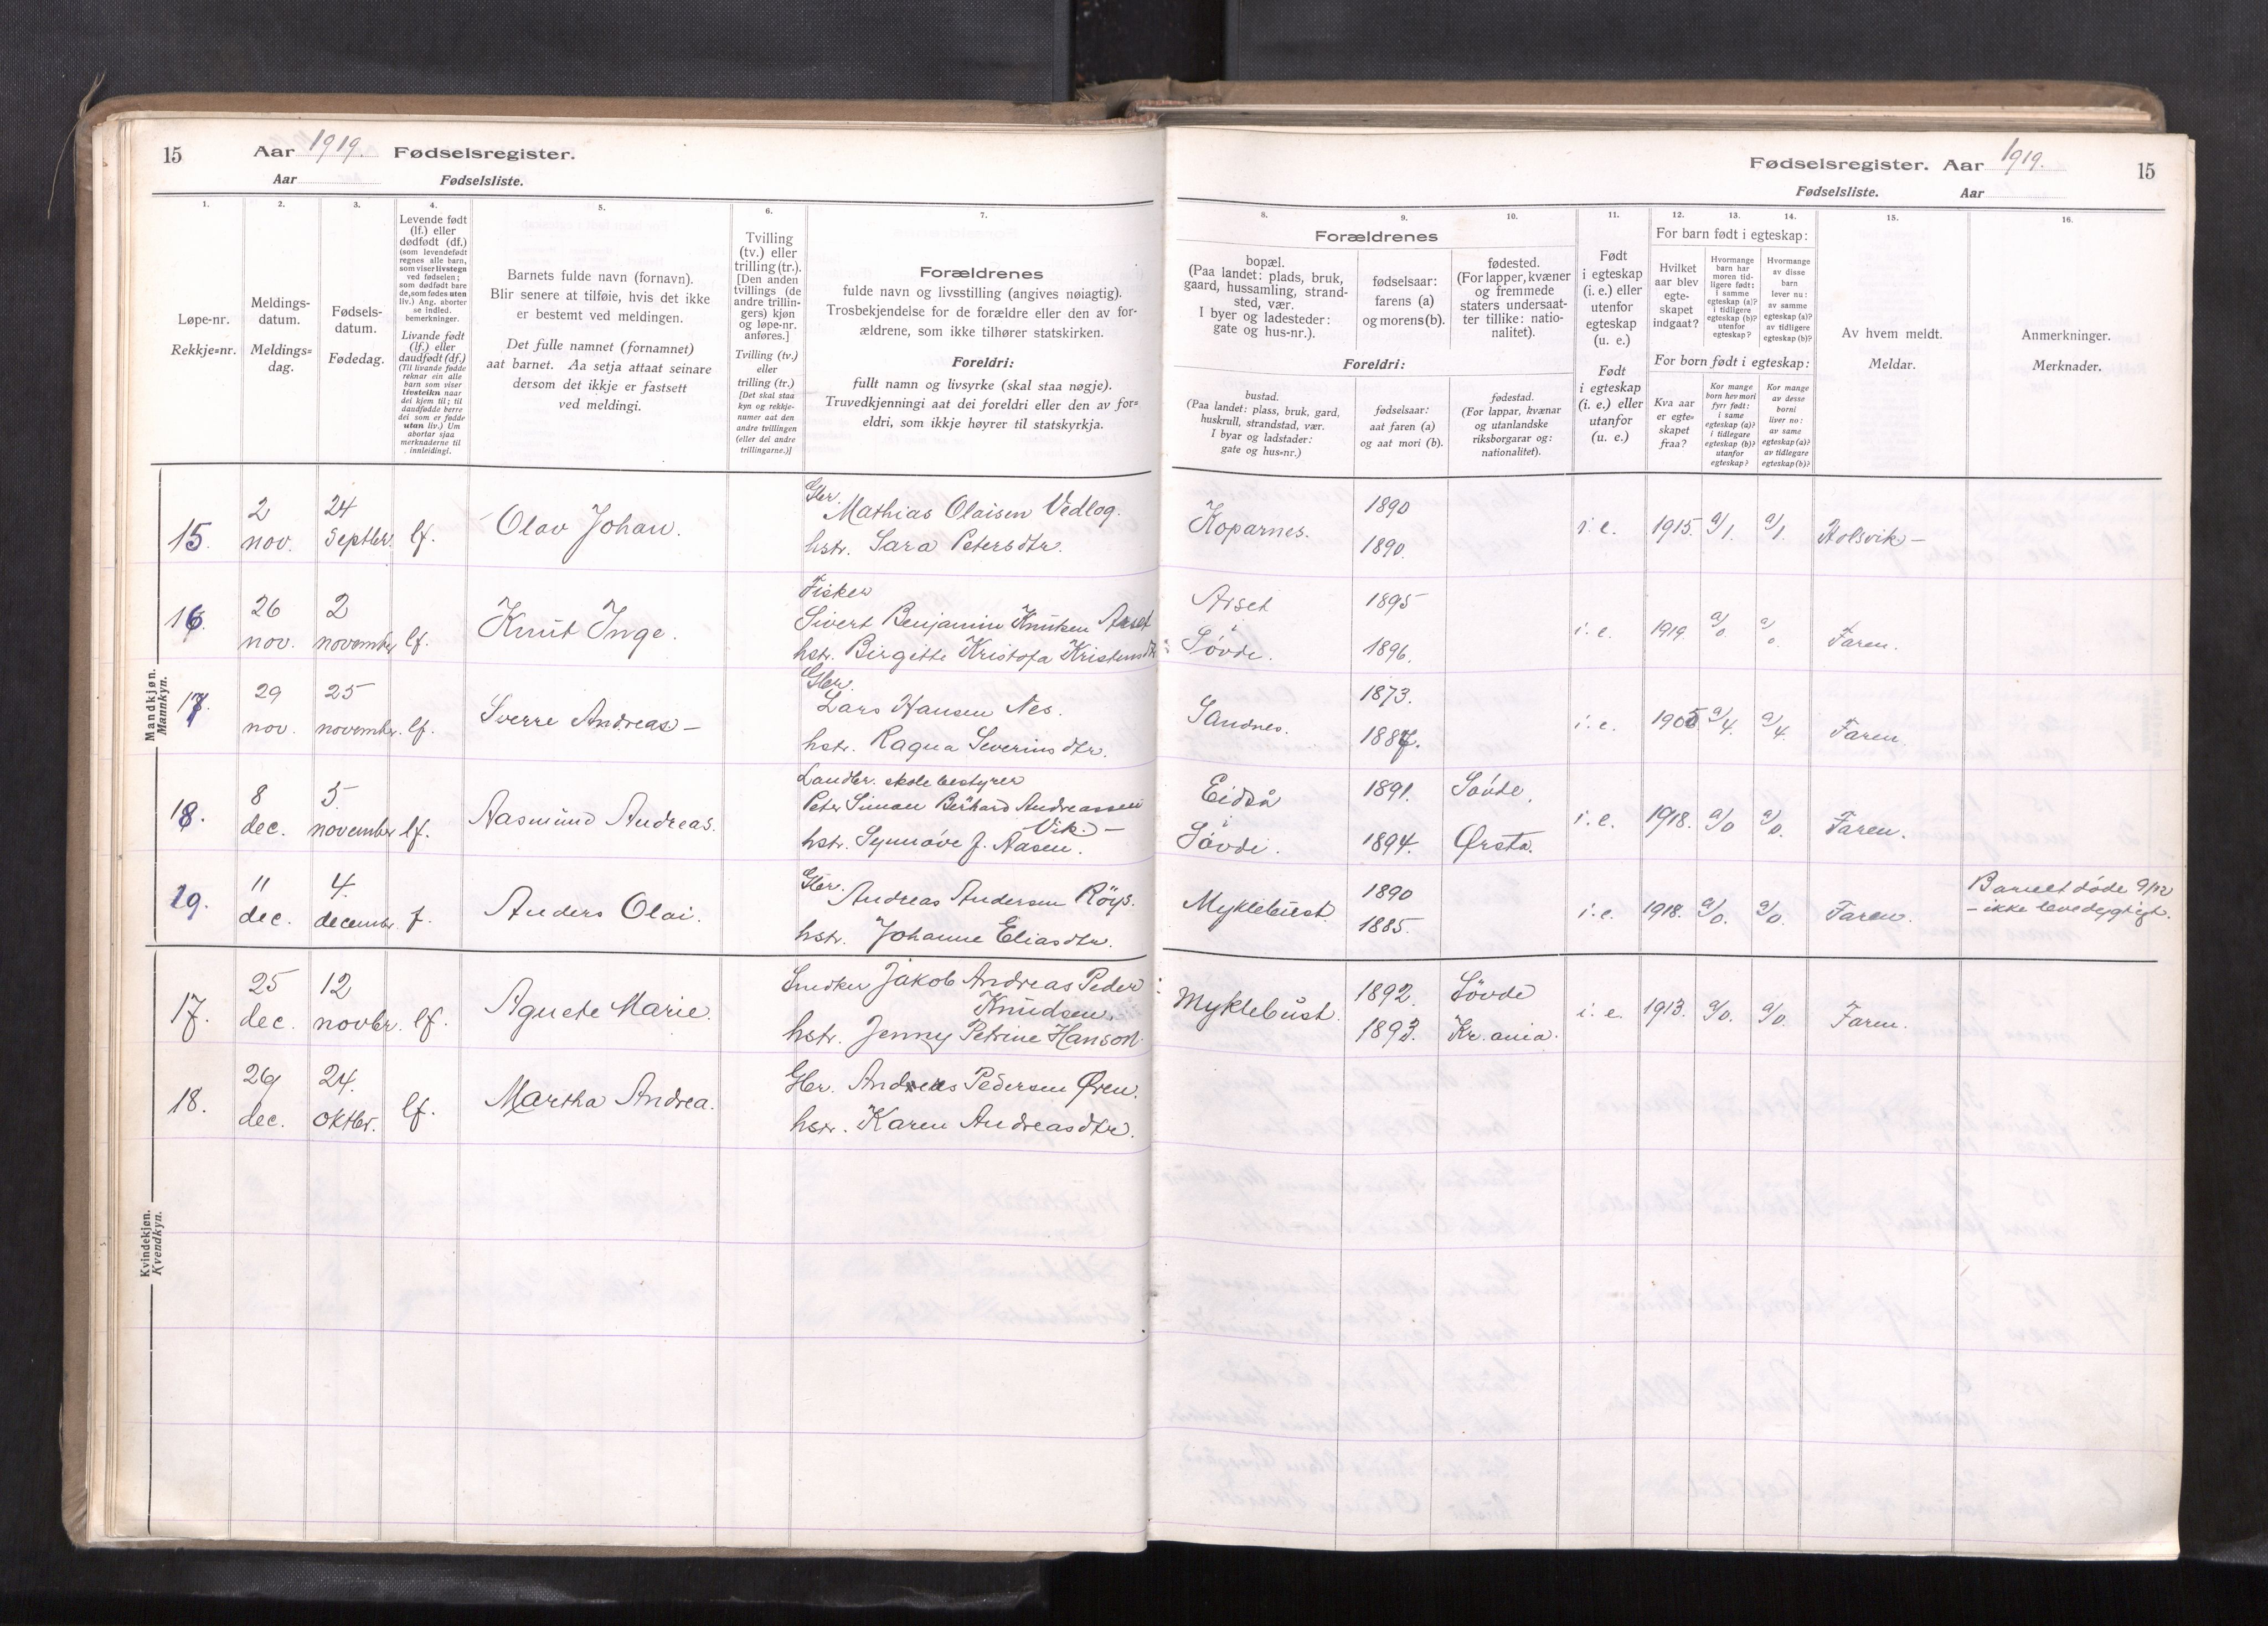 15
Aar 1919. Fødselsregister.
Aar Fødselsliste.
1.
Løpe-nr.
Rekkje=nr.
2.
Meldings-
datum.
Meldings=
dag.
3.
Fødsels-
datum.
Fødedag.
4.
Levende født
(lf.) eller
dødfødt (df.)
(som levendefødt
regnes alle barn,
som viser livstegn
ved fødselen;
som dødfødt bare
de, som fødes uten
liv.) Ang. aborter
se indled.
bemerkninger.
Livande født
(lf.) eller
daudfødt (df.)
(Til livande fødde
reknar ein alle
barn som viser
livsteikn naar
dei kjem til; til
daudfødde berre
dei som er fødde
utan liv.) Um
abortar sjaa
merknaderne til
innleidingi.
5.
Barnets fulde navn (fornavn).
Blir senere at tilføie, hvis det ikke
er bestemt ved meldingen.
Det fulle namnet (fornamnet)
aat barnet. Aa setja attaat seinare
dersom det ikkje er fastsett
ved meldingi.
6.
Tvilling
(tv.) eller
trilling (tr.).
[Den anden
tvillings (de
andre trillin-
gers) kjøn
og løpe-nr.
anføres.]
Tvilling (tv.)
eller
trilling (tr.)
[Det skal staa
kyn og rekkje-
numer aat den
andre tvillingen
(eller dei andre
trillingarne.)]
7.
Forældrenes
fulde navn og livsstilling (angives nøiagtig).
Trosbekjendelse for de forældre eller den av for-
ældrene, som ikke tilhører statskirken.
Foreldri:
fullt namn og livsyrke (skal staa nøgje).
Truvedkjenningi aat dei foreldri eller den av for=
eldri, som ikkje høyrer til statskyrkja.
Mandkjøn.
Mannkyn.
15. 2 nov. 24 Septbr. lf. Olav Johan. Gbr. Mathias Olaisen Vedlog.
hstr. Sara Petersdtr.
16. 26 nov. 2 november lf. Knut Inge. Fisker
Sivert Benjamin Knutsen Aarset
hstr. Birgitte Kristofa Kristensdtr
17. 29 nov. 25 novembr. lf. Sverre Andreas – Gbr.
Lars Hansen Nes.
hstr. Ragna Severinsdtr.
18. 8 dec. 5. november lf. Aasmund Andreas. Landbr. skolebestyrer
Peter Simon Berhard Andreassen
Vik. –
hstr. Synnøve J. Aasen.
19. 11 dec. 4. decembr. f. Anders Olai. Gbr. Andreas Andersen Röys.
hstr. Johanne Eliasdtr.
Kvindekjøn.
Kvendkyn.
17. 25 dec. 12 novbr. lf. Agnete Marie. Snedker Jakob Andreas Peder
Knudsen.
hstr. Jenny Petrine Hanson.
18. 29 dec. 24. oktbr. lf. Martha Andrea. Gbr. Andreas Pedersen Øren.
hstr. Karen Andreasdtr.
Fødselsregister. Aar 1919. 15
Fødselsliste. Aar
8.
Forældrenes
bopæl.
(Paa landet: plads, bruk,
gaard, hussamling, strand-
sted, vær.
I byer og ladesteder:
gate og hus-nr.).
Foreldri:
bustad.
(Paa landet: plass, bruk, gard,
huskrull, strandstad, vær.
I byar og ladstader:
gate og hus=nr.)
9.
fødselsaar:
farens (a)
og morens (b).
fødselsaar:
aat faren (a)
og aat mori (b).
10.
fødested.
(For lapper, kvæner
og fremmede
staters undersaat-
ter tillike: natio-
nalitet).
fødestad.
(For lappar, kvænar
og utanlandske
riksborgarar og:
nationalitet).
11.
Født
i egteskap
(i. e.) eller
utenfor
egteskap
(u. e.)
Født
i egteskap
(i. e.) eller
utanfor
(u. e.)
For barn født i egteskap:
12.
Hvilket
aar blev
egte-
skapet
indgaat?
13.
Hvormange
barn har
moren tid-
ligere født:
i samme
egteskap (a)?
i tidligere
egteskap (b)?
utenfor
egteskap?
14.
Hvormange
av disse
barn
lever nu:
av samme
egteskap (a)?
av tidligere
egteskap (b)?
For born født i egteskap:
Kva aar
er egte=
skapet
fraa?
Kor mange
born hev mori
fyrr født:
i same
egteskap (a)?
i tidlegare
egteskap (b)?
utanfor
egteskap?
Kor mange
av desse
borni
liver no:
av same
egteskap (a)?
av tidlegare
egteskap (b)?
15.
Av hvem meldt.
Meldar.
16.
Anmerkninger.
Merknader.
Koparnes. 1890 1890. i. e. 1915. a/1. a/1. Holsvik –
Arset Søvde. 1895 1896. i. e. 1919. a/0 a/0 Faren.
Sandnes. 1873. 1887. i. e. 1905 a/4. a/4. Faren.
Eidså Søvde. 1891. 1894. Søvde. Ørsta. i. e. 1918. a/0 a/0. Faren.
Myklebust. 1890 1885. i. e. 1918. a/0. a/0. Faren. Barnet døde 9/12
– ikke levedygtigt.
Myklebust. 1892. 1893. Søvde Kr.ania. i. e. 1913. a/0. a/0. Faren.